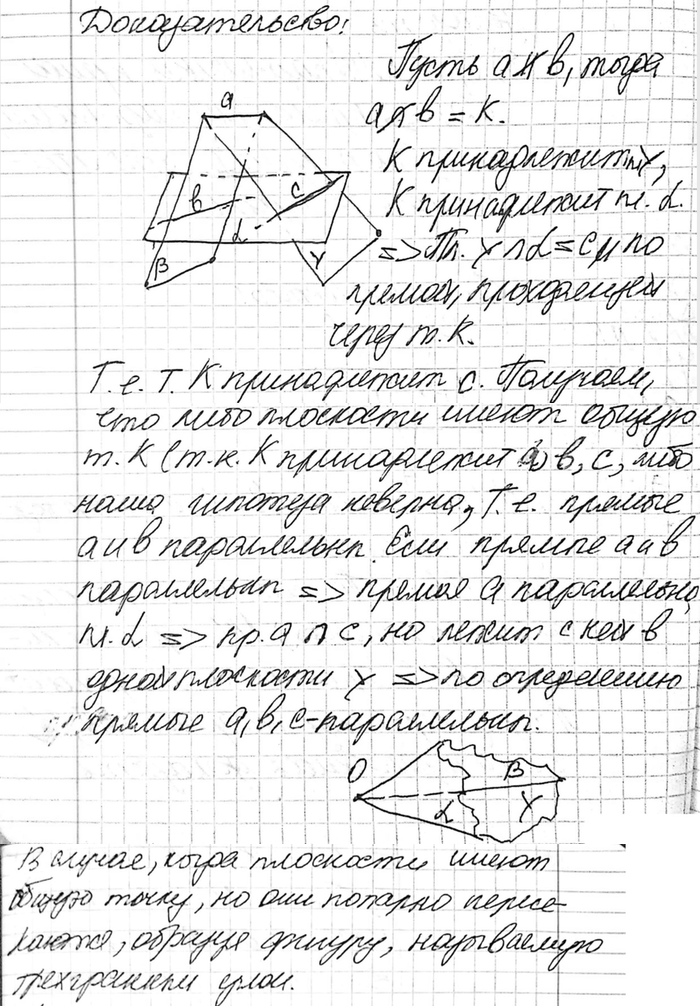 Доказательство:
Пусть a ∦ b, тогда
a ∩ b = K.
K принадлежит пл. γ,
K принадлежит пл. α.
=> Пл. γ ∩ α = c по
прямой, проходящей
через т. K.
Т.е. т. K принадлежит c. Получаем,
что либо плоскости имеют общую
т. K (т.к. K принадлежит a, b, c, либо
наша гипотеза неверна, т.е. прямые
a и b параллельн. Если прямые a и b
параллельн => прямая a параллельна
пл. α => пр. a ∩ c, но лежит с ней в
одной плоскости γ => по определению
прямые a, b, c - параллельн.
a
b
c
α
β
γ
O
β
α
γ
В случае, когда плоскости имеют
общую точку, но они попарно пересе-
каются, образуя фигуру, называемую
трехгранным углом.